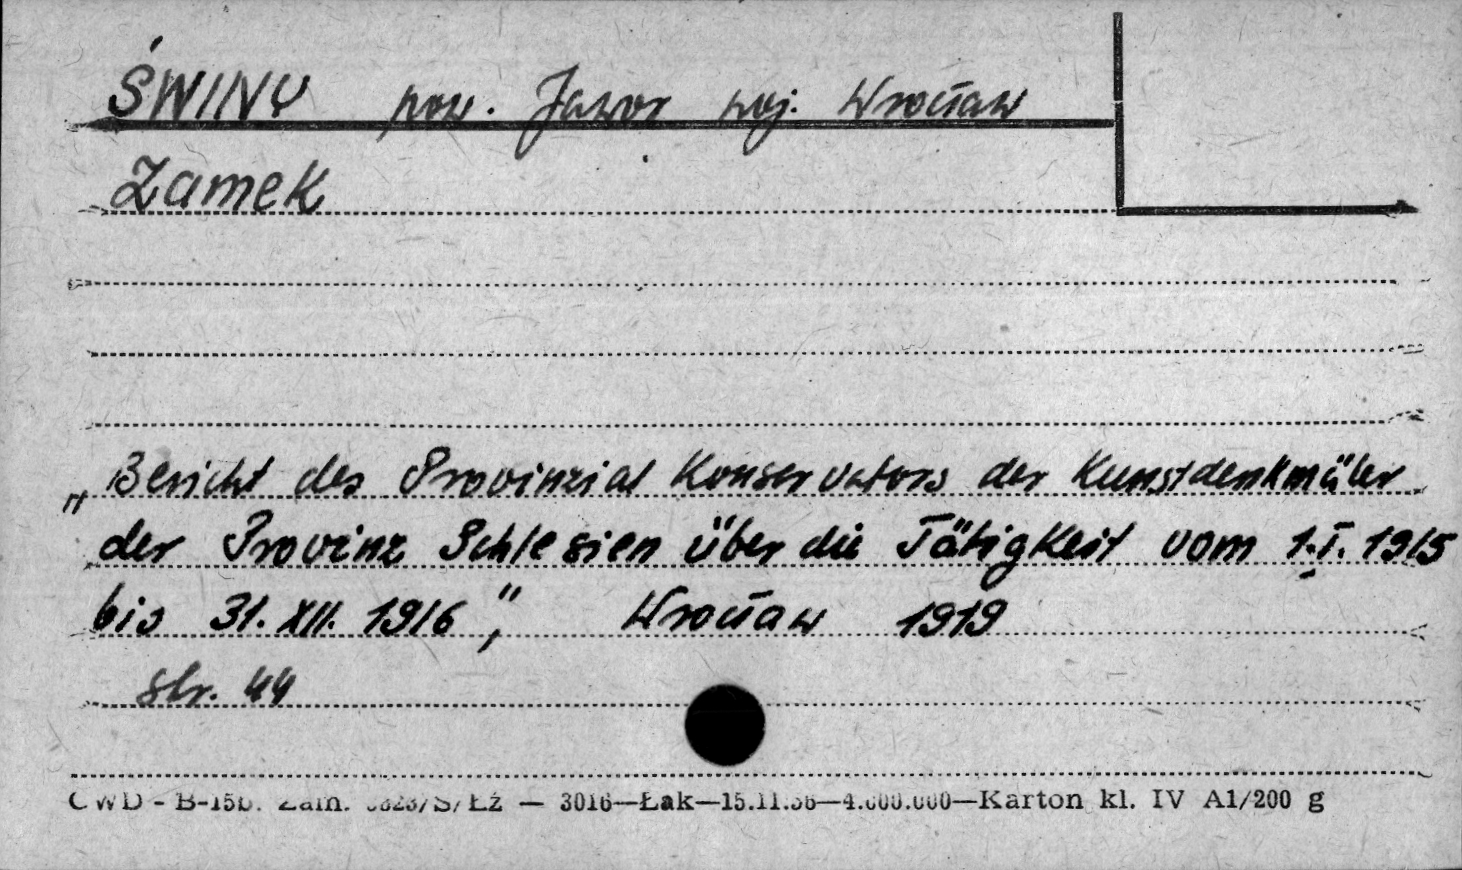 ŚWINY pow. Jawor woj. Wrocław
Zamek
„Bericht des Provinzial Konservators der Kunstdenkmäler
der Provinz Schlesien über die Tätigkeit vom 1.I.1915
bis 31.XII.1916", Wrocław 1919
str. 44
CWD - B-15b. Zam. /S/Łź — 3016—Łak—15.11.56—4.000.000—Karton kl. IV A1/200 g